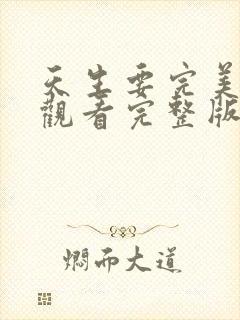 天生要完美
觀看完整版
燜而大道